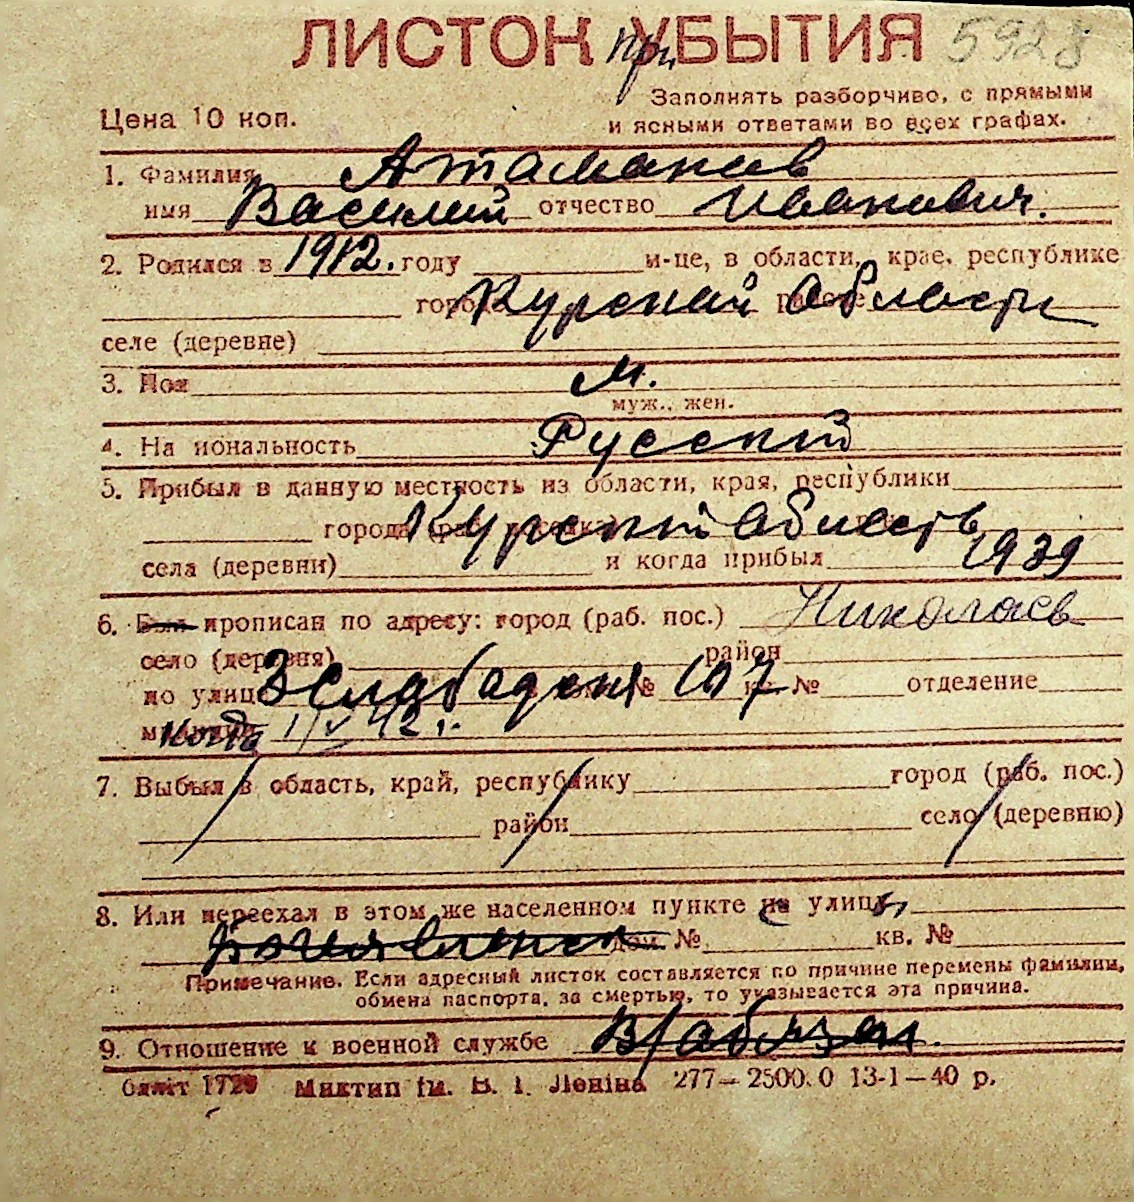 ЛИСТОК при УБЫТИЯ 5928
Цена 10 коп.
Заполнять разборчиво, с прямыми
и ясными ответами во всех графах.
1. Фамилия Атаманов
имя Василий отчество Иванович.
2. Родился в 1912. году и-це, в области, крае, республике
города Курский районе области
селе (деревне)
3. Пол м.
муж., жен.
4. На иональность Русский
5. Прибыл в данную местность из области, края, республики
города (раб. поселка) Курский область
села (деревни) и когда прибыл 1939
6. Был прописан по адресу: город (раб. пос.) Николаев
село (деревня) район
по улице 3 Слабадская № 107 кв. № отделение
милиции Когда 1/V 42 г.
7. Выбыл в область, край, республику город (раб. пос.)
район село (деревню)
8. Или переехал в этом же населенном пункте на улицу
дом № кв. №
Примечание. Если адресный листок составляется по причине перемены фамилии,
обмена паспорта, за смертью, то указывается эта причина.
9. Отношение к военной службе В/абязан.
Блліт 1729 Миктип ім. В. І. Леніна 277—2500.0 13-1—40 р.